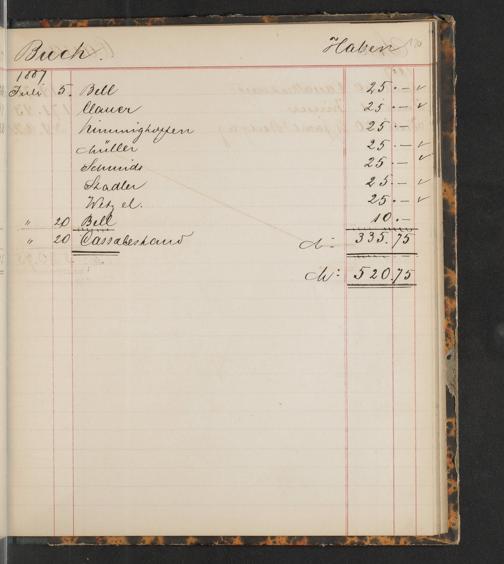 Buch. Haben
1887
Juli 5. Bell 25.–
Clauer 25.–
Kimminghofen 25.–
Müller 25.–
Schmidt 25.–
Stadler 25.–
Wetzel. 25.–
" 20 Bell 10.–
" 20 Cassabestand M: 335.75
M: 520.75